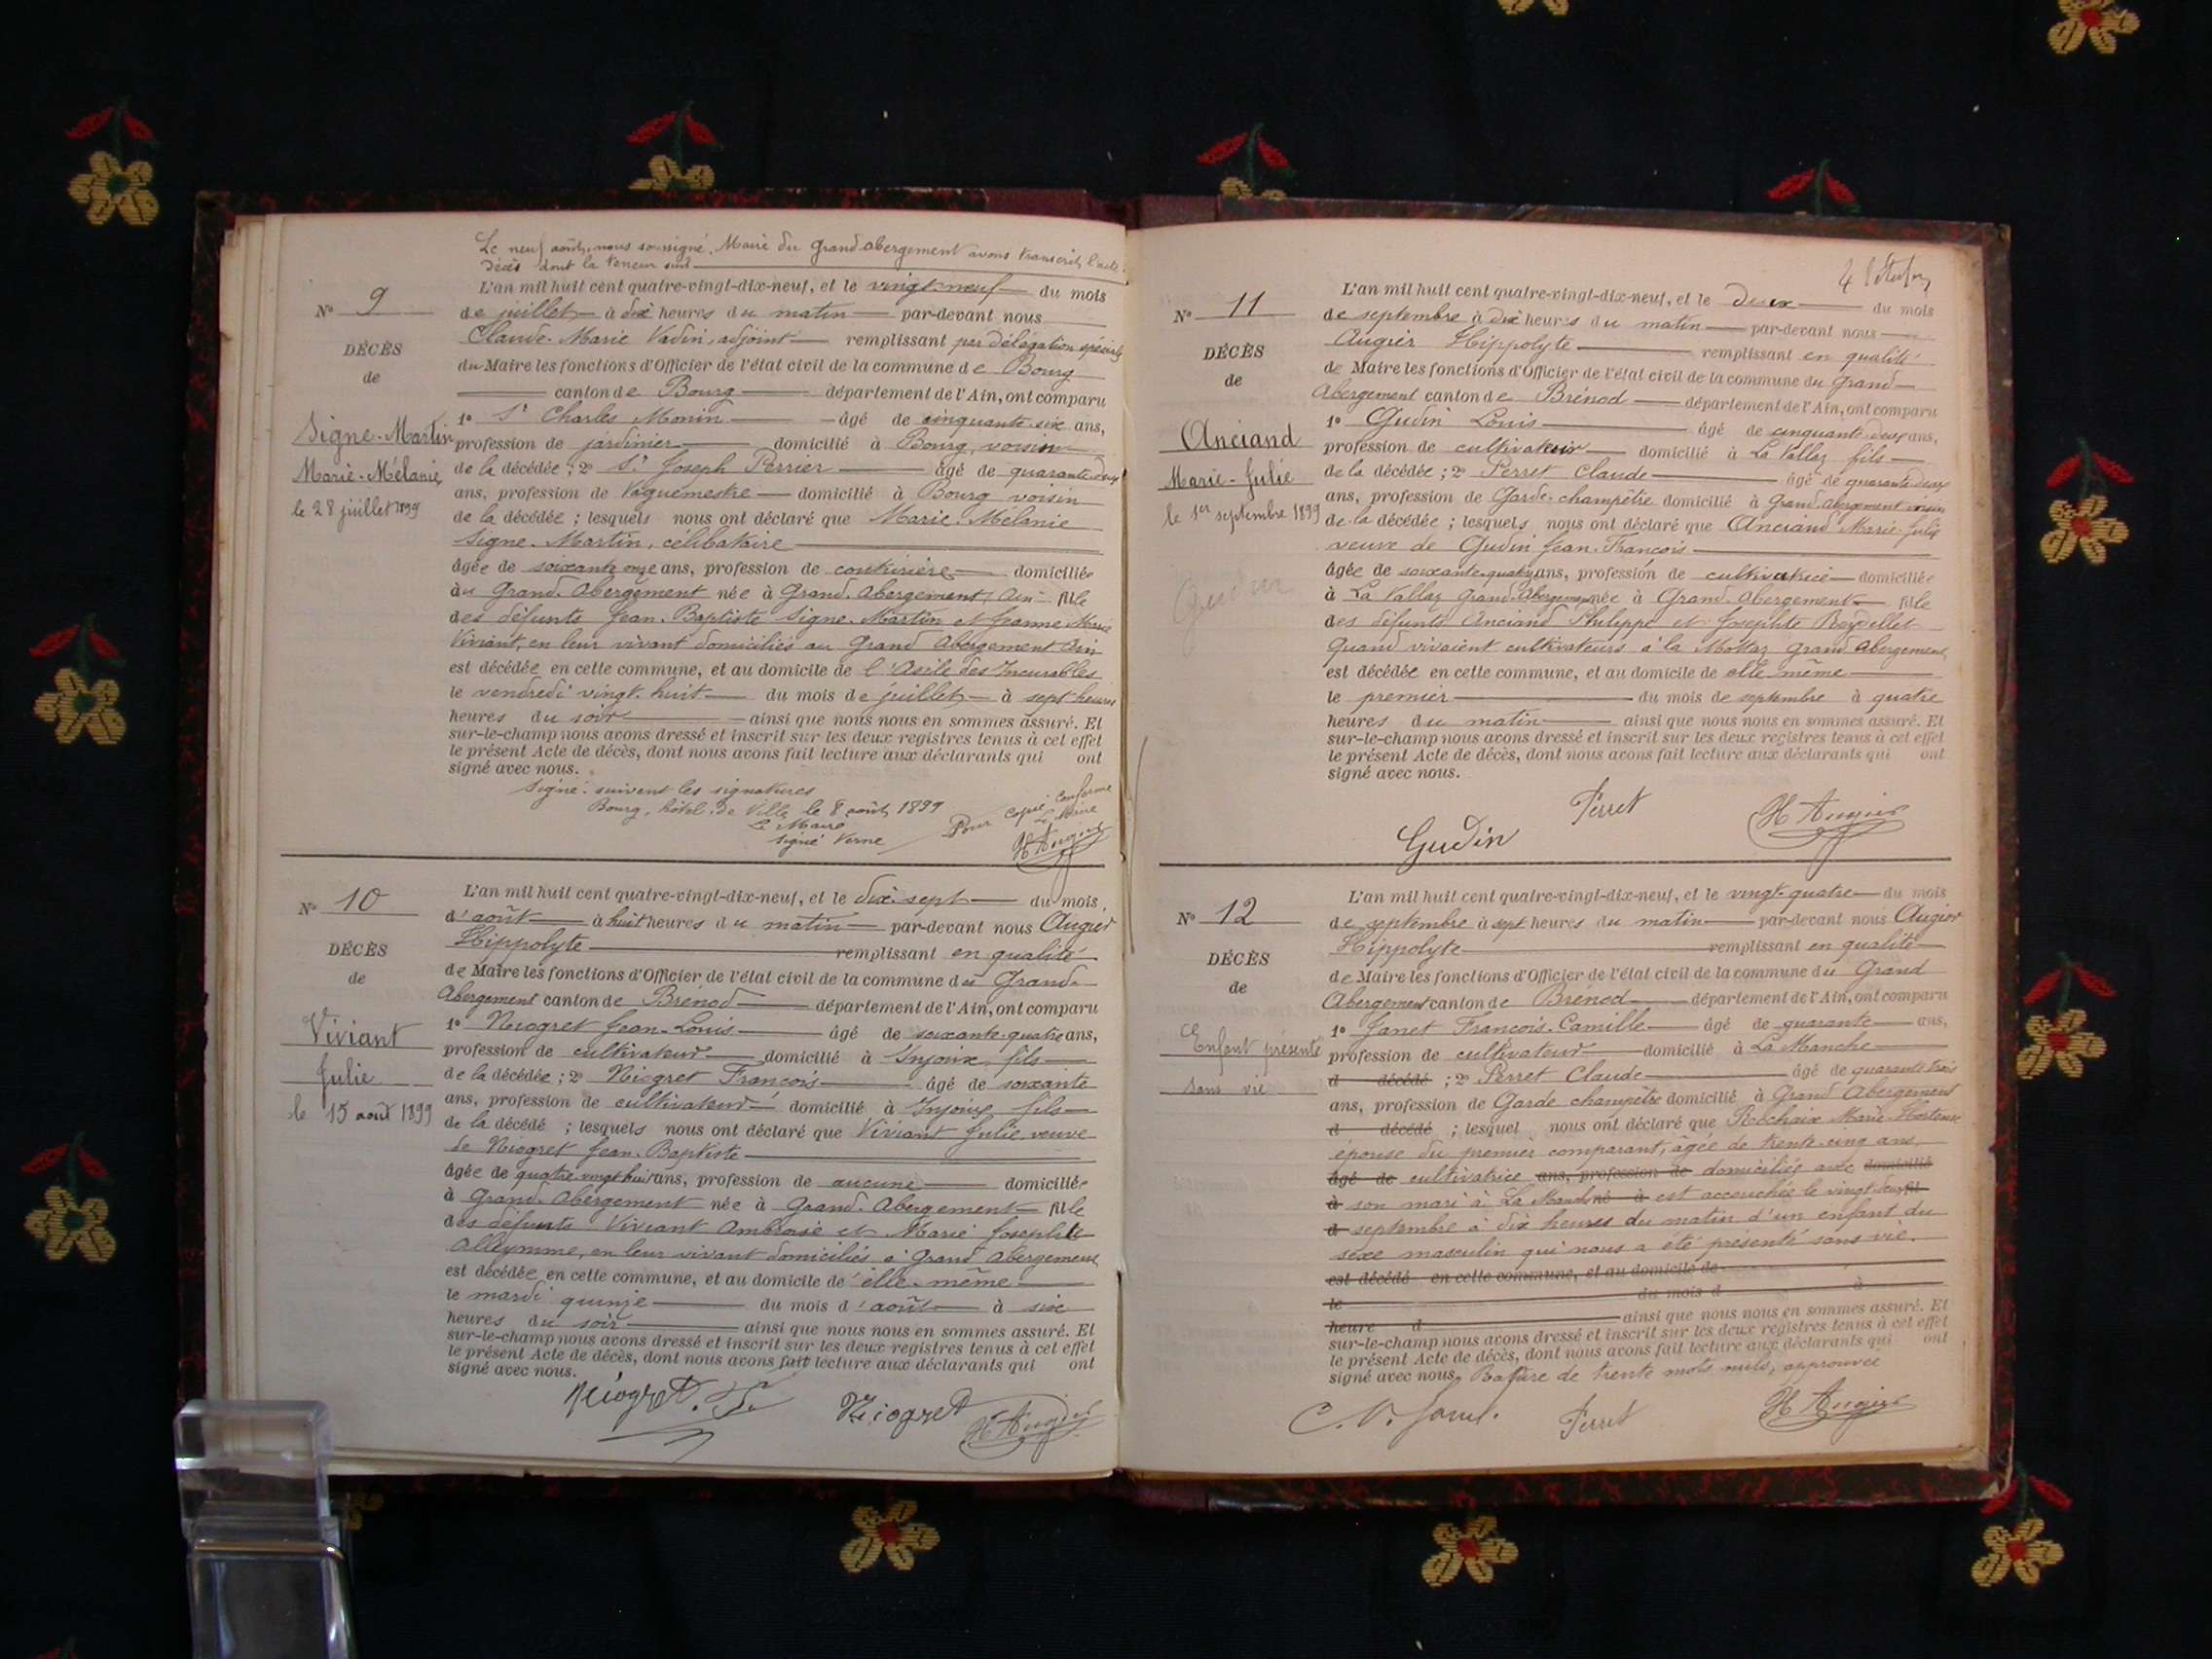 Le neuf août, nous soussigné, Maire du Grand-Abergement avons transcrit l'acte de
décès dont la teneur suit
Nº 9
DÉCÈS
de
Signe-Martin
Marie-Mélanie
le 28 juillet 1899
L'an mil huit cent quatre-vingt-dix-neuf, et le vingt-neuf du mois
de juillet à dix heures du matin par-devant nous
Claude-Marie Vadin, adjoint remplissant par délégation spéciale
du Maire les fonctions d'Officier de l'état civil de la commune de Bourg
canton de Bourg département de l'Ain, ont comparu
1º Sr Charles Monin âgé de cinquante-six ans,
profession de jardinier domicilié à Bourg, voisin
de la décédée ; 2º Sr Joseph Perrier âgé de quarante-deux
ans, profession de Vaguemestre domicilié à Bourg voisin
de la décédée ; lesquels nous ont déclaré que Marie-Mélanie
Signe-Martin, célibataire
âgée de soixante onze ans, profession de couturière domiciliée
au Grand-Abergement née à Grand-Abergement, Ain fille
des défunts Jean-Baptiste Signe-Martin et Jeanne Marie
Viviant, en leur vivant domiciliés au Grand Abergement Ain
est décédée en cette commune, et au domicile de l'Asile des Incurables
le vendredi vingt-huit du mois de juillet à sept heures
heures du soir ainsi que nous nous en sommes assuré. Et
sur-le-champ nous avons dressé et inscrit sur les deux registres tenus à cet effet
le présent Acte de décès, dont nous avons fait lecture aux déclarants qui ont
signé avec nous.
Signé : suivent les signatures
Bourg, hôtel de Ville le 8 août 1899
Le Maire
Signé Verne
Pour copie conforme
Le Maire
H Augier
Nº 10
DÉCÈS
de
Viviant
Julie
le 15 août 1899
L'an mil huit cent quatre-vingt-dix-neuf, et le dix-sept du mois
d'août à huit heures du matin par-devant nous Augier
Hippolyte remplissant en qualité
de Maire les fonctions d'Officier de l'état civil de la commune du Grand-
Abergement canton de Brénod département de l'Ain, ont comparu
1º Niogret Jean-Louis âgé de soixante-quatre ans,
profession de cultivateur domicilié à Injoux fils
de la décédée ; 2º Niogret François âgé de soixante
ans, profession de cultivateur domicilié à Injoux fils
de la décédé ; lesquels nous ont déclaré que Viviant Julie veuve
de Niogret Jean-Baptiste
âgée de quatre-vingt-huit ans, profession de aucune domiciliée
à Grand-Abergement née à Grand-Abergement fille
des défunts Viviant Ambroise et Marie Josephte
Alleymme, en leur vivant domiciliés à Grand Abergement
est décédée en cette commune, et au domicile de elle-même
le mardi quinze du mois d'août à six
heures du soir ainsi que nous nous en sommes assuré. Et
sur-le-champ nous avons dressé et inscrit sur les deux registres tenus à cet effet
le présent Acte de décès, dont nous avons fait lecture aux déclarants qui ont
signé avec nous.
Niogret. F.
Niogret
H Augier
Nº 11
DÉCÈS
de
Anciand
Marie-Julie
le 1er septembre 1899
Gudin
L'an mil huit cent quatre-vingt-dix-neuf, et le deux du mois
de septembre à dix heures du matin par-devant nous
Augier Hippolyte remplissant en qualité
de Maire les fonctions d'Officier de l'état civil de la commune du Grand-
Abergement canton de Brénod département de l'Ain, ont comparu
1º Gudin Louis âgé de cinquante-deux ans,
profession de cultivateur domicilié à La Vallaz fils
de la décédée ; 2º Perret Claude âgé de quarante-deux
ans, profession de Garde-champêtre domicilié à Grand-Abergement voisin
de la décédée ; lesquels nous ont déclaré que Anciand Marie-Julie
veuve de Gudin Jean-François
âgée de soixante-quatorze ans, profession de cultivatrice domiciliée
à La Vallaz Grand-Abergement née à Grand-Abergement fille
des défunts Anciand Philippe et Josephte Reydellet
Quand vivaient cultivateurs à la Mottaz Grand Abergement
est décédée en cette commune, et au domicile de elle même
le premier du mois de septembre à quatre
heures du matin ainsi que nous nous en sommes assuré. Et
sur-le-champ nous avons dressé et inscrit sur les deux registres tenus à cet effet
le présent Acte de décès, dont nous avons fait lecture aux déclarants qui ont
signé avec nous.
Perret
Gudin
H Augier
Nº 12
DÉCÈS
de
Enfant présenté
sans vie
L'an mil huit cent quatre-vingt-dix-neuf, et le vingt-quatre du mois
de septembre à sept heures du matin par-devant nous Augier
Hippolyte remplissant en qualité
de Maire les fonctions d'Officier de l'état civil de la commune du Grand
Abergement canton de Brénod département de l'Ain, ont comparu
1º Janet François-Camille âgé de quarante ans,
profession de cultivateur domicilié à La Manche
d décédé ; 2º Perret Claude âgé de quarante trois
ans, profession de Garde champêtre domicilié à Grand Abergement
d décédé ; lesquel nous ont déclaré que Rochaix Marie-Hortense
épouse du premier comparant, âgée de trente-cinq ans,
âgé de cultivatrice ans, profession de domiciliée avec domicilié
à son mari à La Manche né à est accouchée le vingt-deux fil
d septembre à dix heures du matin d'un enfant du
sexe masculin qui nous a été présenté sans vie.
est décédé en cette commune, et au domicile de
le du mois d à
heure d ainsi que nous nous en sommes assuré. Et
sur-le-champ nous avons dressé et inscrit sur les deux registres tenus à cet effet
le présent Acte de décès, dont nous avons fait lecture aux déclarants qui ont
signé avec nous. Rature de trente mots nuls, approuvée
Perret
H Augier